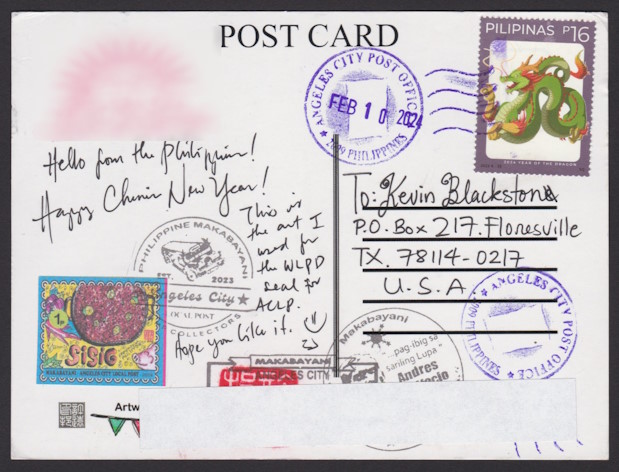 POST CARD
PILIPINAS P16
2024 YEAR OF THE DRAGON
ANGELES CITY POST OFFICE
FEB 10 2024
2009 PHILIPPINES
Hello from the Philippines!
Happy Chinese New Year!
This is
the art I
used for
the WLPD
seal for
ACLP.
Hope you like it.
To: Kevin Blackstone
P.O. Box 217. Floresville
TX. 78114-0217
U.S.A.
PHILIPPINE MAKABAYANI
EST. 2023
Angeles City ★
LOCAL POST
COLLECTORS
1P
SISIG
MAKABAYANI - ANGELES CITY LOCAL POST
MAKABAYANI
ANGELES CITY
Makabayani
pag-ibig sa
sariling Lupa
Andres
ANGELES CITY POST OFFICE
2009 PHILIPPINES
Artw